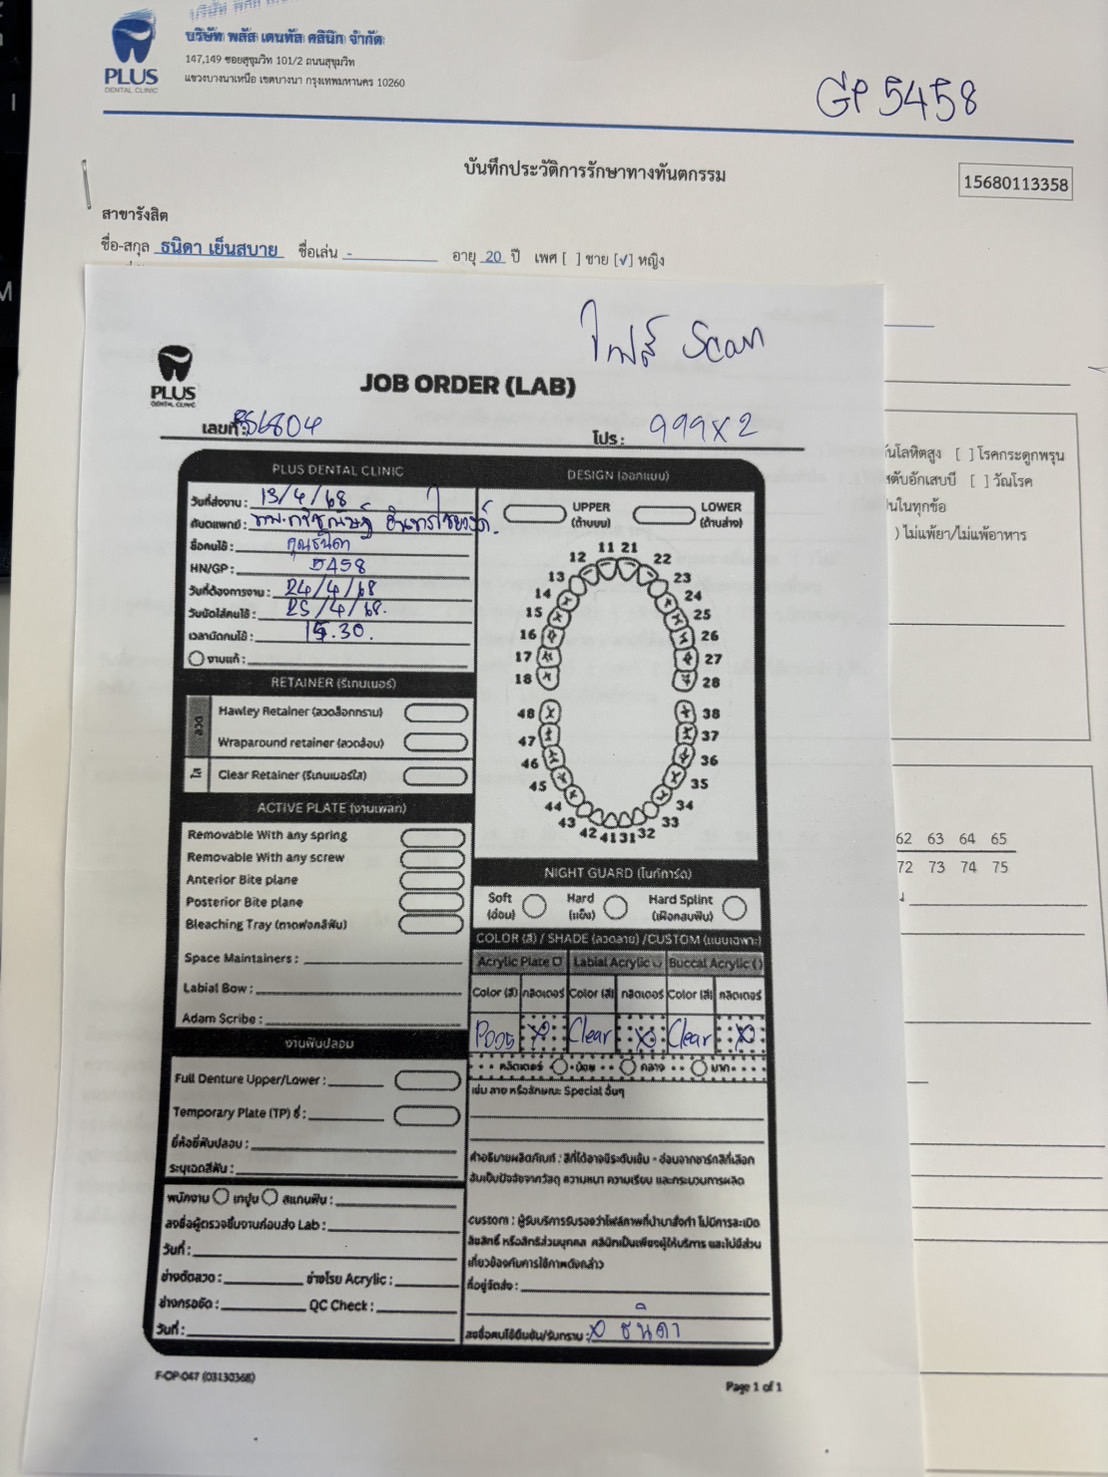 บริษัท พลัส เดนทัล คลินิก จำกัด
147,149 ซอยสุขุมวิท 101/2 ถนนสุขุมวิท
แขวงบางนาเหนือ เขตบางนา กรุงเทพมหานคร 10260
PLUS
DENTAL CLINIC
GP 5458
บันทึกประวัติการรักษาทางทันตกรรม
15680113358
สาขารังสิต
ชื่อ-สกุล ธนิดา เย็นสบาย ชื่อเล่น - อายุ 20 ปี เพศ [ ] ชาย [√] หญิง
ไฟล์ Scan
PLUS
DENTAL CLINIC
JOB ORDER (LAB)
เลขที่: 6804
โปร : 999x2
PLUS DENTAL CLINIC
วันที่ส่งงาน : 13/4/68
ทันตแพทย์ : ทพ.
ชื่อคนไข้ : คุณธนิดา
HN/GP : 5458
วันที่ต้องการงาน : 24/4/68
วันนัดใส่คนไข้ : 25/4/68.
เวลานัดคนไข้ : 15.30.
งานแก้ :
RETAINER (รีเทนเนอร์)
ลวด
Hawley Retainer (ลวดล็อกกราม)
Wraparound retainer (ลวดล้อม)
ใส
Clear Retainer (รีเทนเนอร์ใส)
ACTIVE PLATE (งานเพลท)
Removable With any spring
Removable With any screw
Anterior Bite plane
Posterior Bite plane
Bleaching Tray (ถาดฟอกสีฟัน)
Space Maintainers :
Labial Bow :
Adam Scribe :
งานฟันปลอม
Full Denture Upper/Lower :
Temporary Plate (TP) ซี่ :
ยี่ห้อซี่ฟันปลอม :
ระบุเฉดสีฟัน :
พนักงาน เทปูน สแกนฟัน :
ลงชื่อผู้ตรวจชิ้นงานก่อนส่ง Lab :
วันที่ :
ช่างดัดลวด : ช่างโรย Acrylic :
ช่างกรอขัด : QC Check :
วันที่ :
DESIGN (ออกแบบ)
UPPER (ด้านบน)
LOWER (ด้านล่าง)
11 21
12 22
13 23
14 24
15 25
16 26
17 27
18 28
48 38
47 37
46 36
45 35
44 34
43 33
42 41 31 32
NIGHT GUARD (ไนท์การ์ด)
Soft (อ่อน) Hard (แข็ง) Hard Splint (เฝือกสบฟัน)
COLOR (สี) / SHADE (ลวดลาย) /CUSTOM (แบบเฉพาะ)
Acrylic Plate Labial Acrylic Buccal Acrylic ( )
Color (สี) กลิตเตอร์ Color (สี) กลิตเตอร์ Color (สี) กลิตเตอร์
P005 x Clear x Clear x
กลิตเตอร์ น้อย กลาง มาก
เช่น ลาย หรือลักษณะ Special อื่นๆ
คำอธิบายผลิตภัณฑ์ : สีที่ได้อาจมีระดับเข้ม - อ่อนจากชาร์ทสีที่เลือก
อันเป็นปัจจัยจากวัสดุ ความหนา ความเรียบ และกระบวนการผลิต
custom : ผู้รับบริการรับรองว่าไฟล์ภาพที่นำมาสั่งทำ ไม่มีการละเมิด
ลิขสิทธิ์ หรือสิทธิส่วนบุคคล คลินิกเป็นเพียงผู้ให้บริการ และไม่มีส่วน
เกี่ยวข้องกับการใช้ภาพดังกล่าว
ที่อยู่จัดส่ง :
ลงชื่อคนไข้ยืนยัน/รับทราบ : x ธนิดา
F-OP-047 (03130368)
Page 1 of 1
นโลหิตสูง [ ] โรคกระดูกพรุน
ตับอักเสบบี [ ] วัณโรค
นในทุกข้อ
) ไม่แพ้ยา/ไม่แพ้อาหาร
62 63 64 65
72 73 74 75